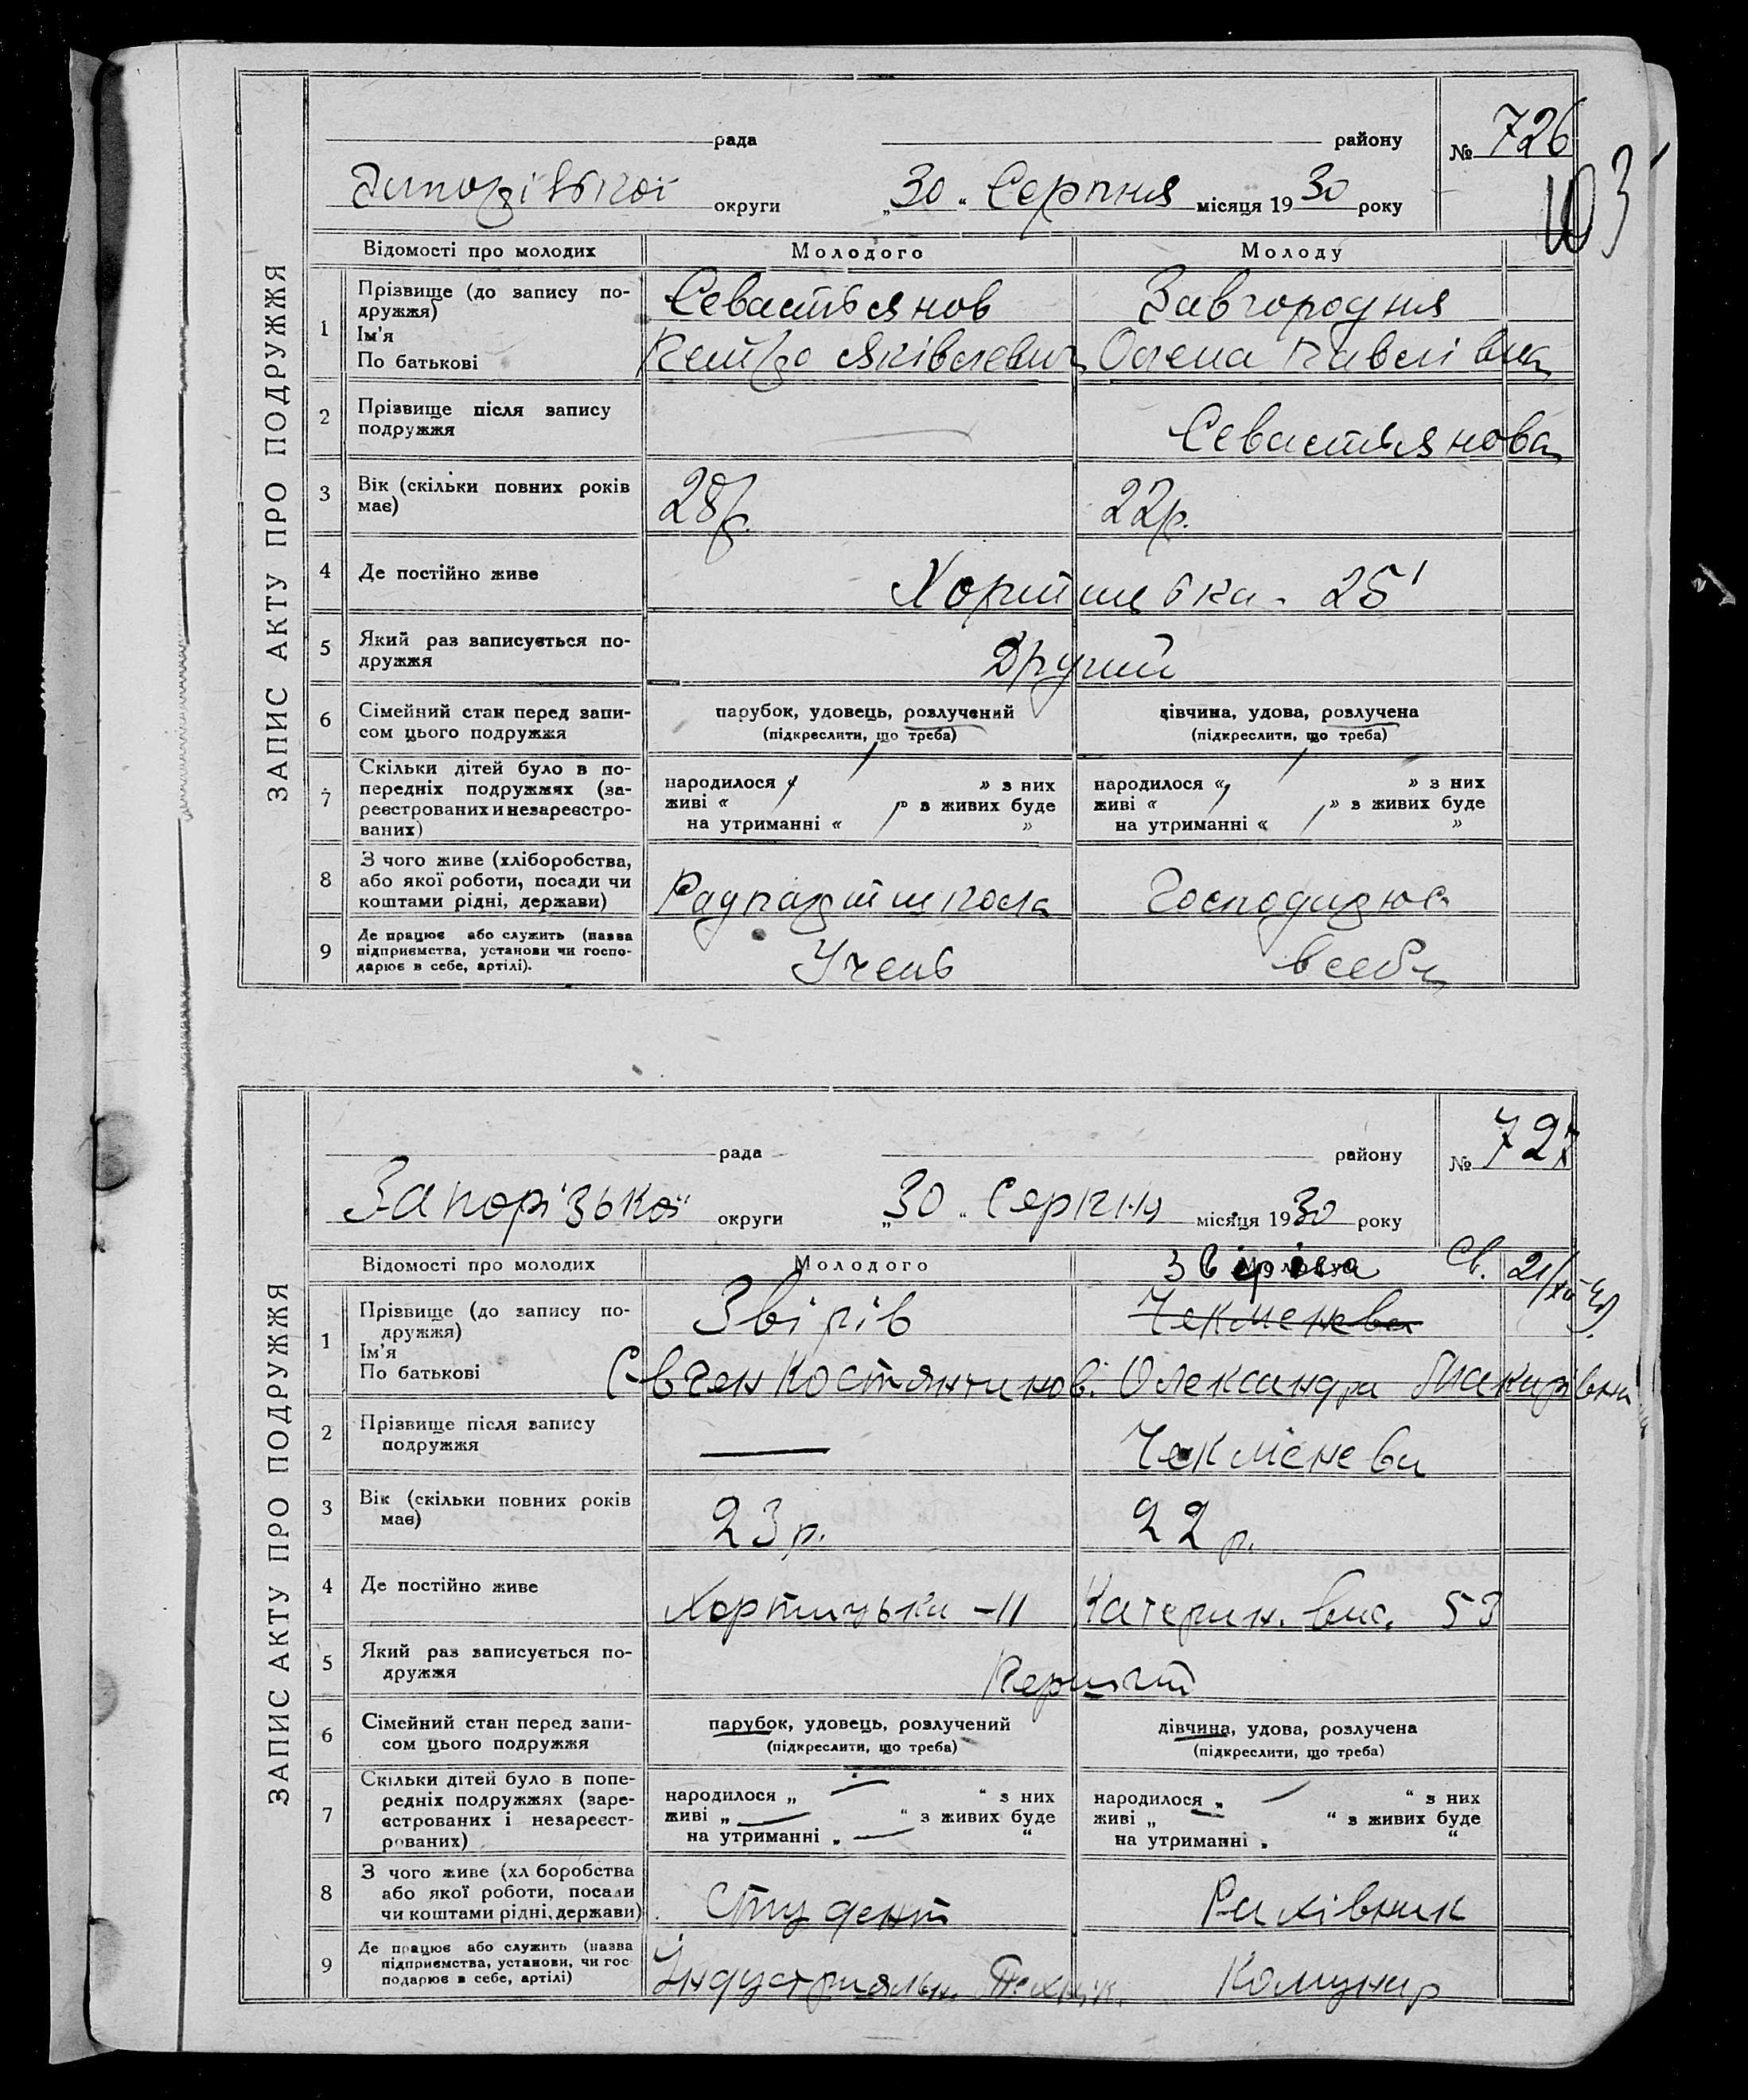 ЗАПИС АКТУ ПРО ПОДРУЖЖЯ
рада району № 726
103
Запорізької округи „30“ Серпня місяця 1930 року
Відомості про молодих Молодого Молоду
1 Прізвище (до запису по-
дружжя) Севастьянов Завгородня
Ім'я
По батькові Петро Яківлевич Олена Павлівна
2 Прізвище після запису
подружжя — Севастьянова
3 Вік (скільки повних років
має) 28р. 22р.
4 Де постійно живе Хортицька - 25
5 Який раз записується по-
дружжя Другий
6 Сімейний стан перед запи-
сом цього подружжя
парубок, удовець, розлучений
(підкреслити, що треба)
дівчина, удова, розлучена
(підкреслити, що треба)
7 Скільки дітей було в по-
передніх подружжях (за-
реєстрованих и незареєстро-
ваних)
народилося « » з них
живі « » з живих буде
на утриманні « »
народилося « » з них
живі « » з живих буде
на утриманні « »
8 З чого живе (хліборобства,
або якої роботи, посади чи
коштами рідні, держави) Радпартшкола Господарює
9 Де працює або служить (назва
підприємства, установи чи госпо-
дарює в себе, артілі). Учень в себе
ЗАПИС АКТУ ПРО ПОДРУЖЖЯ
рада району № 727
Запорізької округи „30“ Серпня місяця 1930 року
Відомості про молодих Молодого Молоду
Звірова Св. 21/XII
1 Прізвище (до запису по-
дружжя) Звірів Чекменева
Ім'я
По батькові Євген Костянтинов. Олександра Макарівна
2 Прізвище після запису
подружжя — Чекменева
3 Вік (скільки повних років
має) 23 р. 22 р.
4 Де постійно живе Хортицька - 11 Катерин. вис. 53
5 Який раз записується по-
дружжя Перший
6 Сімейний стан перед запи-
сом цього подружжя
парубок, удовець, розлучений
(підкреслити, що треба)
дівчина, удова, розлучена
(підкреслити, що треба)
7 Скільки дітей було в попе-
редніх подружжях (заре-
єстрованих і незареєст-
рованих)
народилося „ — “ з них
живі „ — “ з живих буде
на утриманні „ — “
народилося „ — “ з них
живі „ — “ з живих буде
на утриманні „ “
8 З чого живе (хліборобства
або якої роботи, посади
чи коштами рідні, держави) Студент Рахівник
9 Де працює або служить (назва
підприємства, установи, чи гос-
подарює в себе, артілі) Індустріяльн. Технік. Комунар